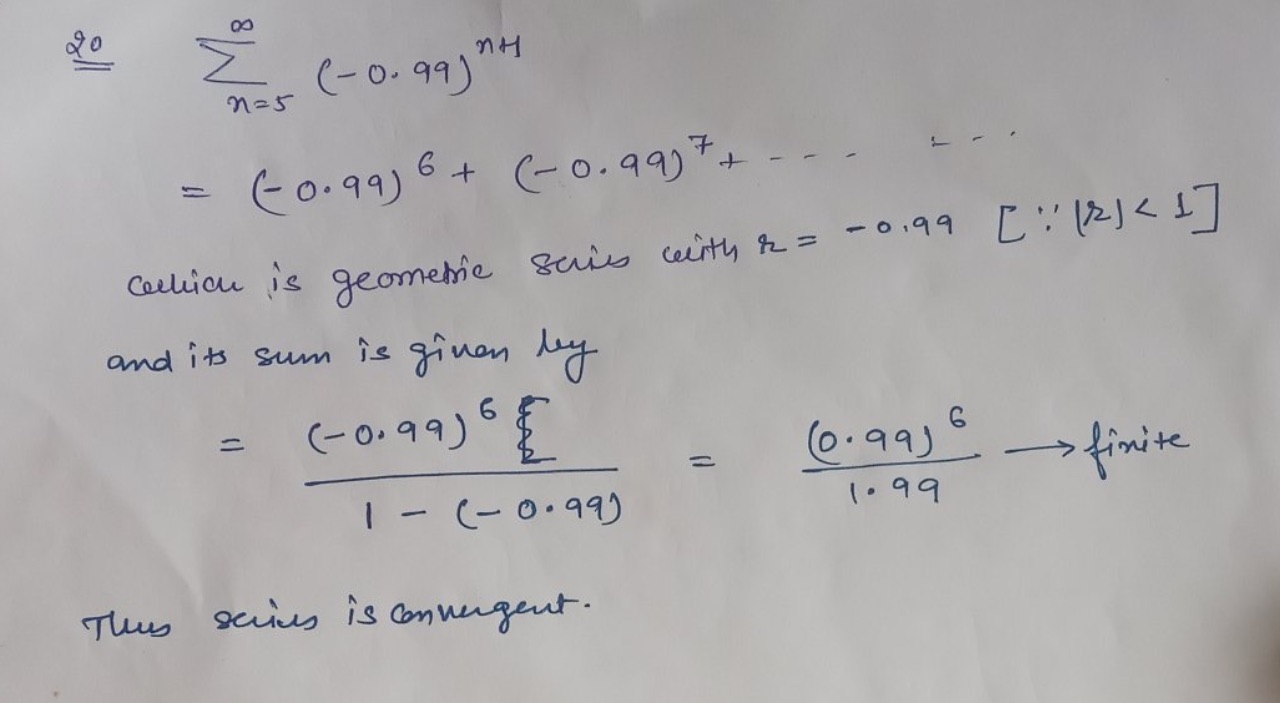 20 ∞
∑ (-0.99)^{n+1}
n=5
= (-0.99)^6 + (-0.99)^7 + - - - - - -
which is geometric series with r = -0.99 [∵ |r| < 1]
and its sum is given by
= (-0.99)^6 / 1 - (-0.99) = (0.99)^6 / 1.99 → finite
Thus series is convergent.